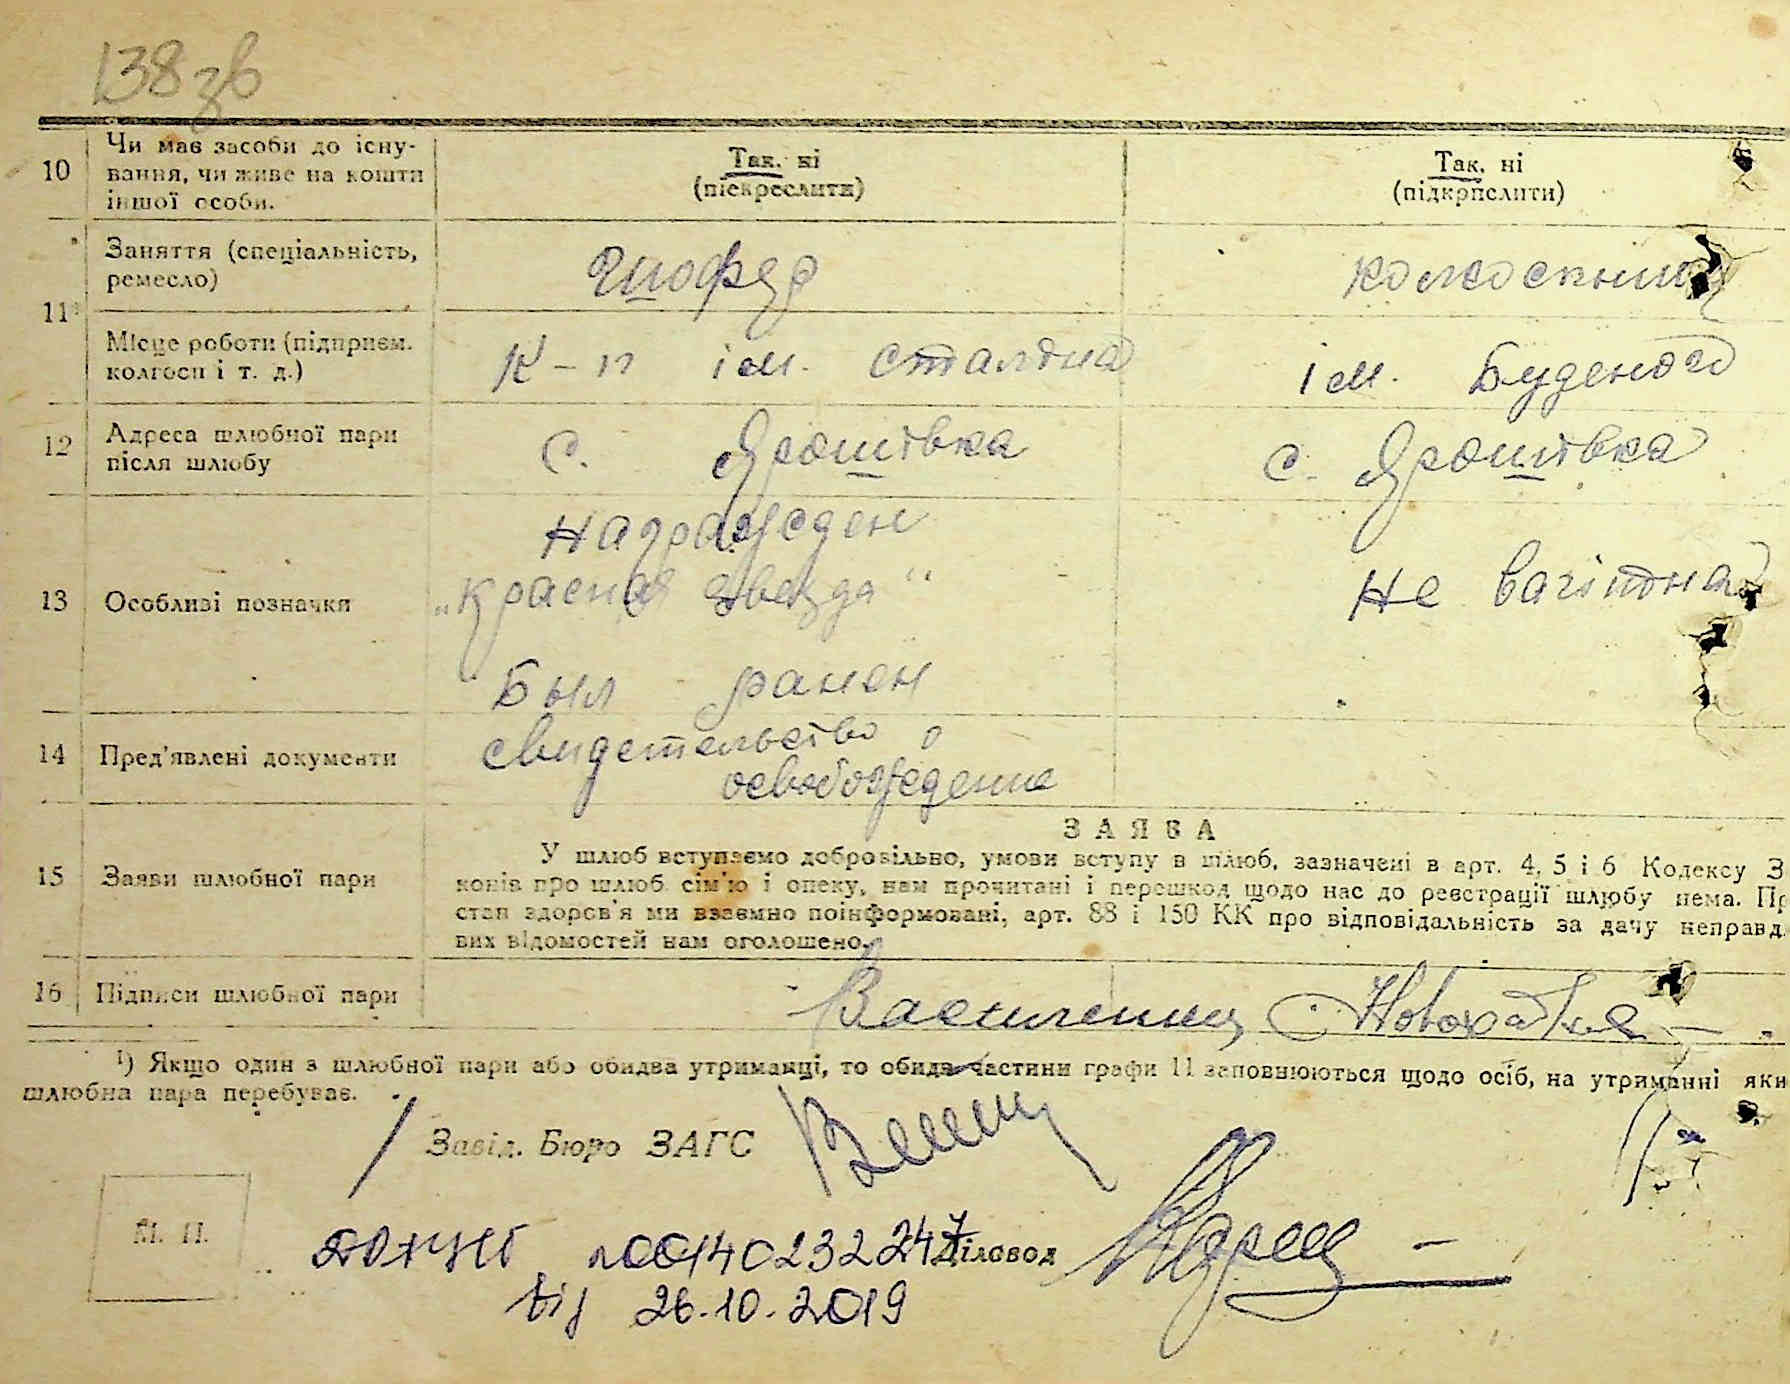 138 зв
10 Чи має засоби до існування, чи живе на кошти іншої особи. Так, ні (підкреслити) Так, ні (підкрпслити)
11¹ Заняття (спеціальність, ремесло) Шофер колхосниц
Місце роботи (підприєм. колгосп і т. д.) К-п ім. Сталіна ім. Буденого
12 Адреса шлюбної пари після шлюбу с. Ярошівка с. Ярошівка
13 Особливі позначки Награжден
„Красная звезда“ Не вагітна
Был ранен
14 Пред'явлені документи свидетельство о
освобождение
ЗАЯВА
15 Заяви шлюбної пари У шлюб вступаємо добровільно, умови вступу в шлюб, зазначені в арт. 4, 5 і 6 Кодексу З
конів про шлюб сім'ю і опеку, нам прочитані і перешкод щодо нас до реєстрації шлюбу нема. Пр
стан здоров'я ми взаємно поінформовані, арт. 88 і 150 КК про відповідальність за дачу неправд
вих відомостей нам оголошено.
16 Підписи шлюбної пари
¹) Якщо один з шлюбної пари або обидва утриманці, то обидв частини графи 11 заповнюються щодо осіб, на утриманні яки
шлюбна пара перебуває.
Завід. Бюро ЗАГС
М. П.
00140232247 Діловод
від 26.10.2019